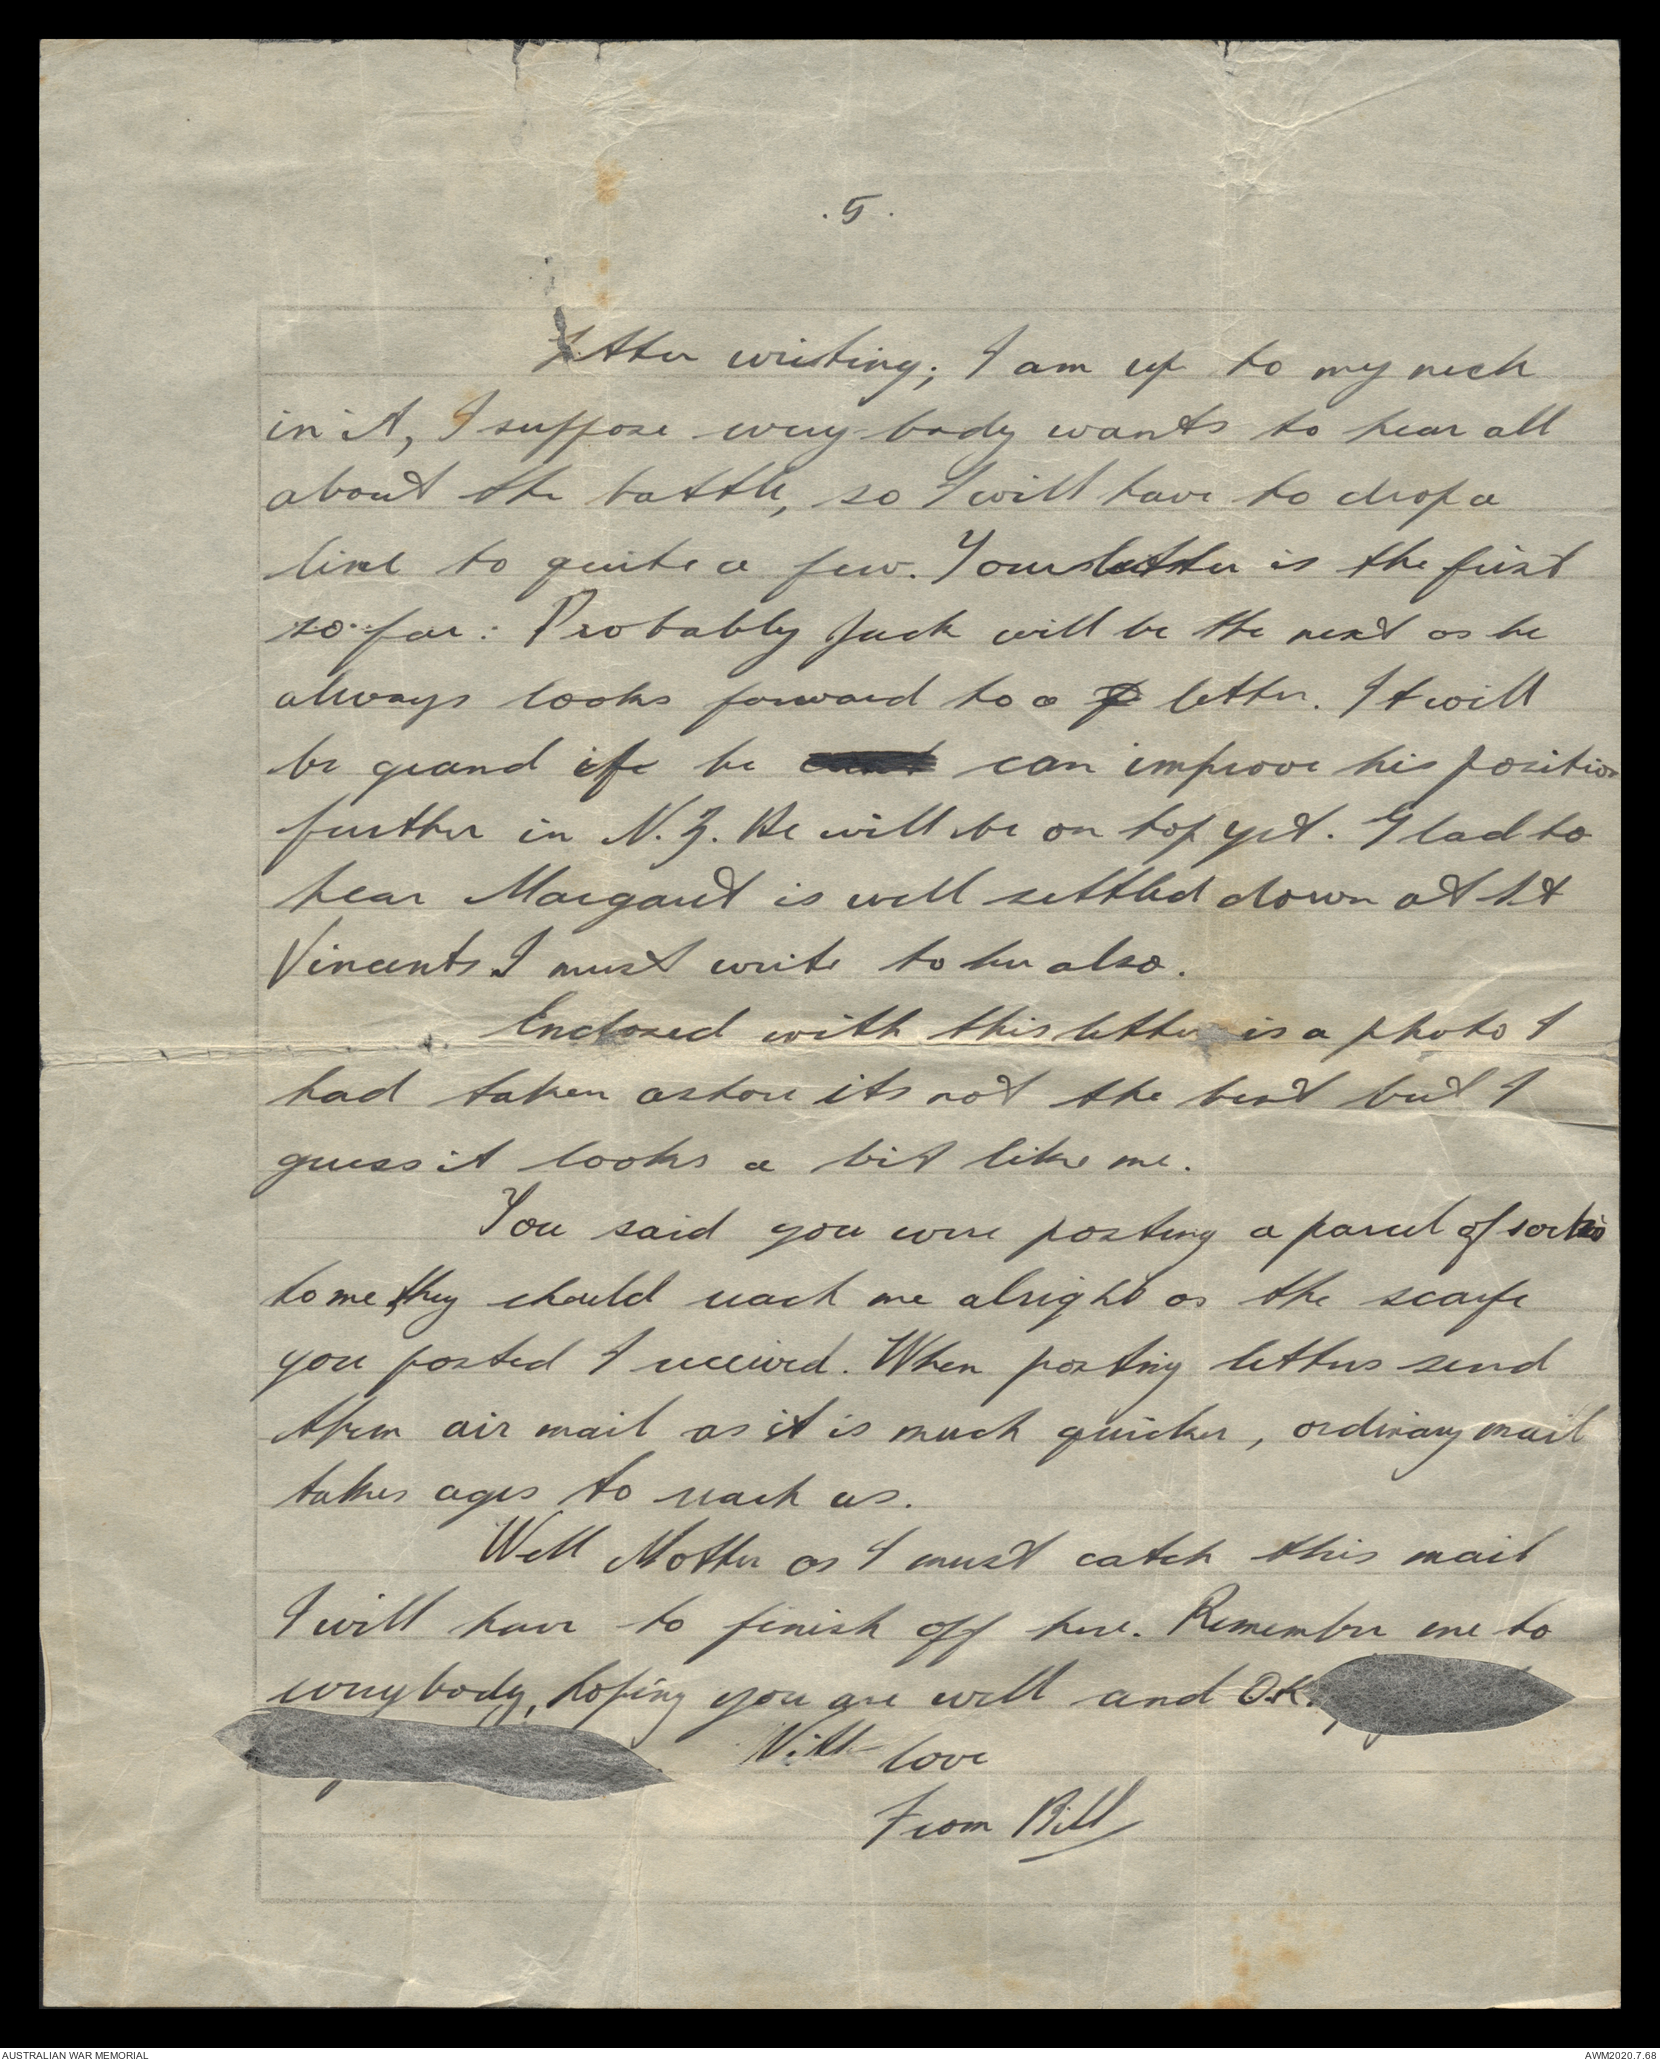 . 5 .
Letter writing; I am up to my neck
in it, I suppose every body wants to hear all
about the battle, so I will have to drop a
line to quite a few. Your letter is the first
so far: Probably Jack will be the next as he
always looks forward to a letter. It will
be grand if he can improve his position
further in N.Z. He will be on top yet. Glad to
hear Margaret is well settled down at St
Vincents I must write to her also.
Enclosed with this letter is a photo I
had taken ashore its not the best but I
guess it looks a bit like me.
You said you were posting a parcel of socks
to me, they should reach me alright as the scarfe
you posted I received. When posting letters send
them air mail as it is much quicker, ordinary mail
takes ages to reach us.
Well Mother as I must catch this mail
I will have to finish off here. Remember me to
everybody, hoping you are well and O.K.
With love
From Bill
AUSTRALIAN WAR MEMORIAL
AWM2020.7.68